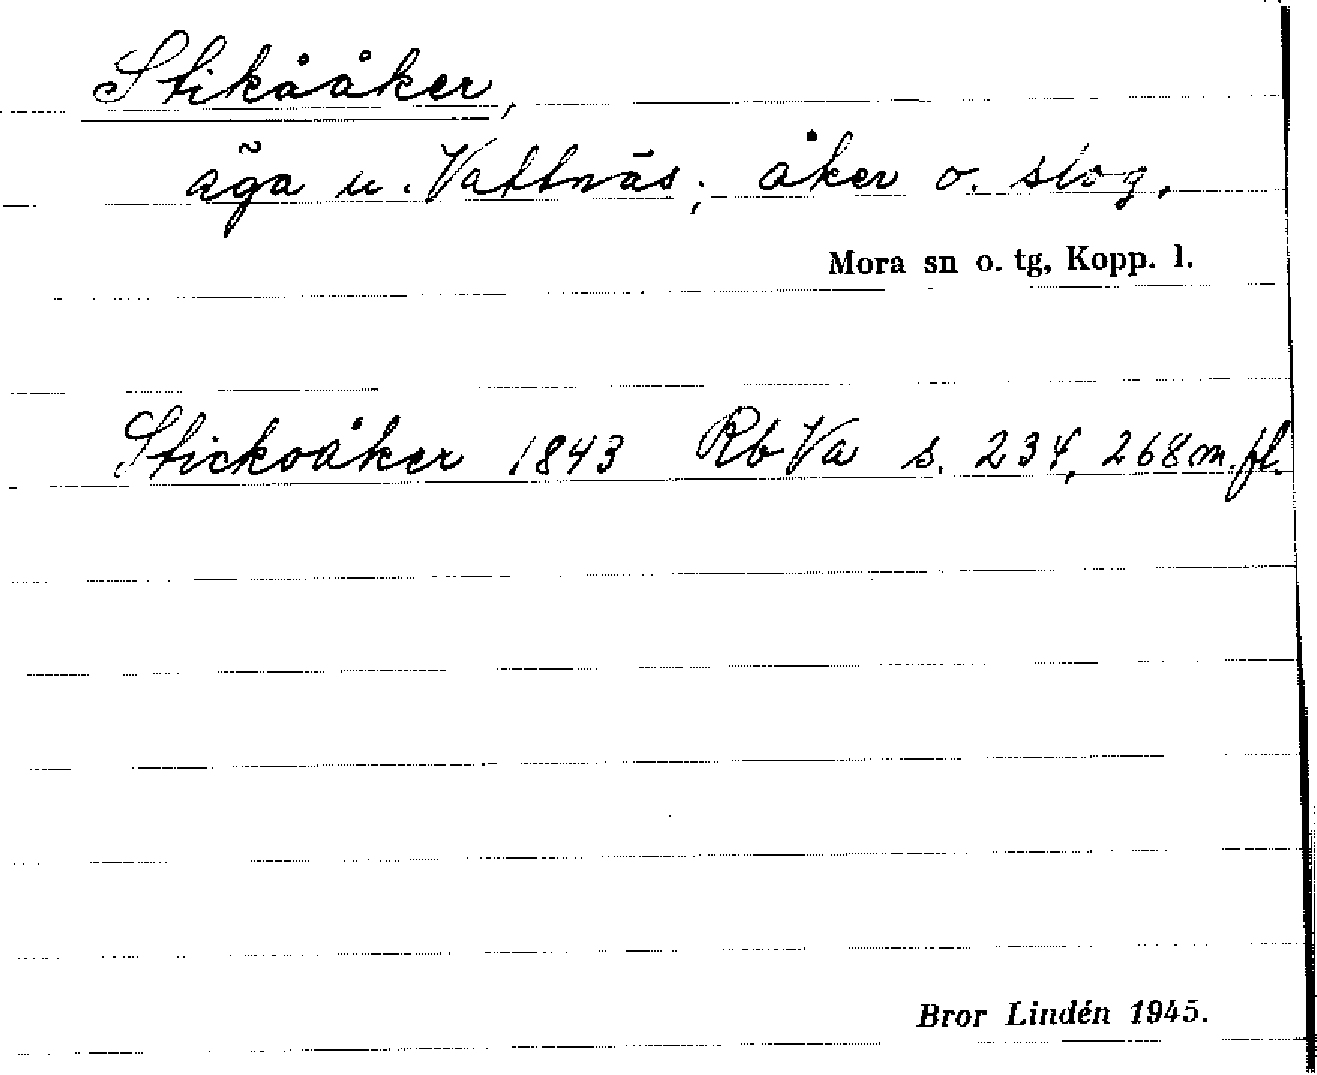 Stikååker,
äga u. Vattnäs; åker o. slog.
Mora sn o. tg, Kopp. l.
Stickoåker 1843 Rb Va s. 234, 268 m. fl.
Bror Lindén 1945.